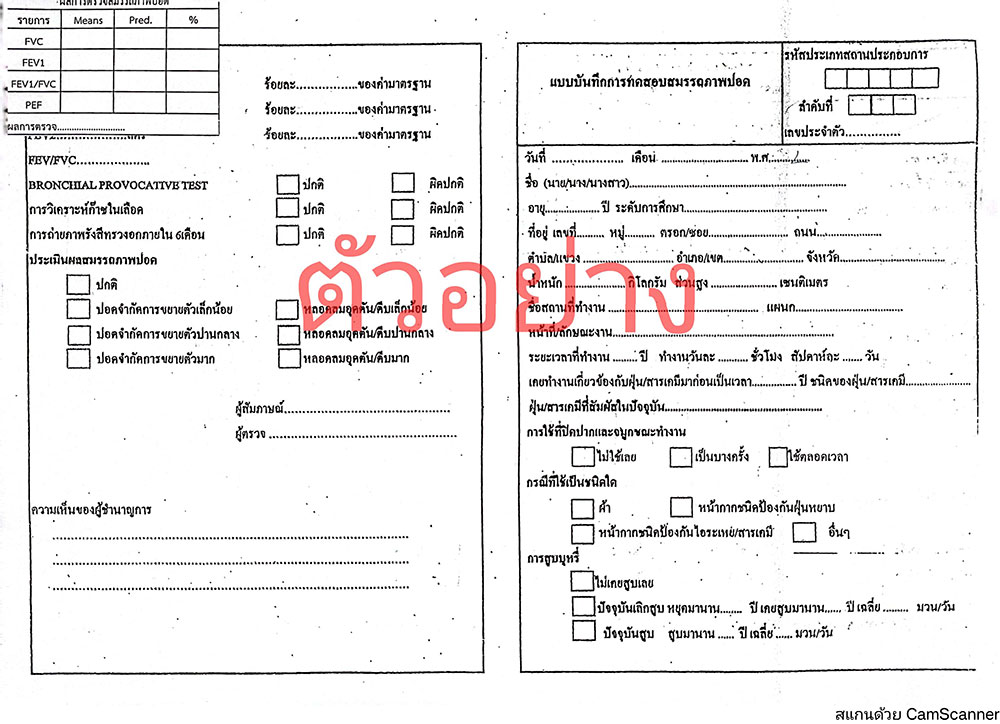 ผลการตรวจสมรรถภาพปอด
รายการ Means Pred. %
FVC
FEV1
FEV1/FVC
PEF
ผลการตรวจ............................
ร้อยละ..................ของค่ามาตรฐาน
ร้อยละ..................ของค่ามาตรฐาน
ร้อยละ..................ของค่ามาตรฐาน
FEV/FVC.....................
BRONCHIAL PROVOCATIVE TEST ปกติ ผิดปกติ
การวิเคราะห์ก๊าซในเลือด ปกติ ผิดปกติ
การถ่ายภาพรังสีทรวงอกภายใน 6เดือน ปกติ ผิดปกติ
ประเมินผลสมรรถภาพปอด
ปกติ
ปอดจำกัดการขยายตัวเล็กน้อย หลอดลมอุดตัน/ตีบเล็กน้อย
ปอดจำกัดการขยายตัวปานกลาง หลอดลมอุดตัน/ตีบปานกลาง
ปอดจำกัดการขยายตัวมาก หลอดลมอุดตัน/ตีบมาก
ผู้สัมภาษณ์..................................................
ผู้ตรวจ ........................................................
ความเห็นของผู้ชำนาญการ
แบบบันทึกการทดสอบสมรรถภาพปอด
รหัสประเภทสถานประกอบการ
ลำดับที่
เลขประจำตัว...............
วันที่ .................... เดือน ......................... พ.ศ.........
ชื่อ (นาย/นาง/นางสาว)..............................................................
อายุ............... ปี ระดับการศึกษา.........................................
ที่อยู่ เลขที่......... หมู่.......... ตรอก/ซอย......................... ถนน...................
ตำบล/แขวง ........................... อำเภอ/เขต........................ จังหวัด..............................
น้ำหนัก .................. กิโลกรัม ส่วนสูง ................... เซนติเมตร
ชื่อสถานที่ทำงาน ............................................. แผนก...............................
หน้าที่/ลักษณะงาน...............................................................
ระยะเวลาที่ทำงาน ........ ปี ทำงานวันละ .......... ชั่วโมง สัปดาห์ละ ....... วัน
เคยทำงานเกี่ยวข้องกับฝุ่น/สารเคมีมาก่อนเป็นเวลา............... ปี ชนิดของฝุ่น/สารเคมี......................
ฝุ่น/สารเคมีที่สัมผัสในปัจจุบัน.............................................
การใช้ที่ปิดปากและจมูกขณะทำงาน
ไม่ใช้เลย เป็นบางครั้ง ใช้ตลอดเวลา
กรณีที่ใช้เป็นชนิดใด
ผ้า หน้ากากชนิดป้องกันฝุ่นหยาบ
หน้ากากชนิดป้องกันไอระเหย/สารเคมี อื่นๆ
การสูบบุหรี่
ไม่เคยสูบเลย
ปัจจุบันเลิกสูบ หยุดมานาน........ ปี เคยสูบมานาน...... ปี เฉลี่ย ......... มวน/วัน
ปัจจุบันสูบ สูบมานาน ...... ปี เฉลี่ย ...... มวน/วัน
ตัวอย่าง
สแกนด้วย CamScanner